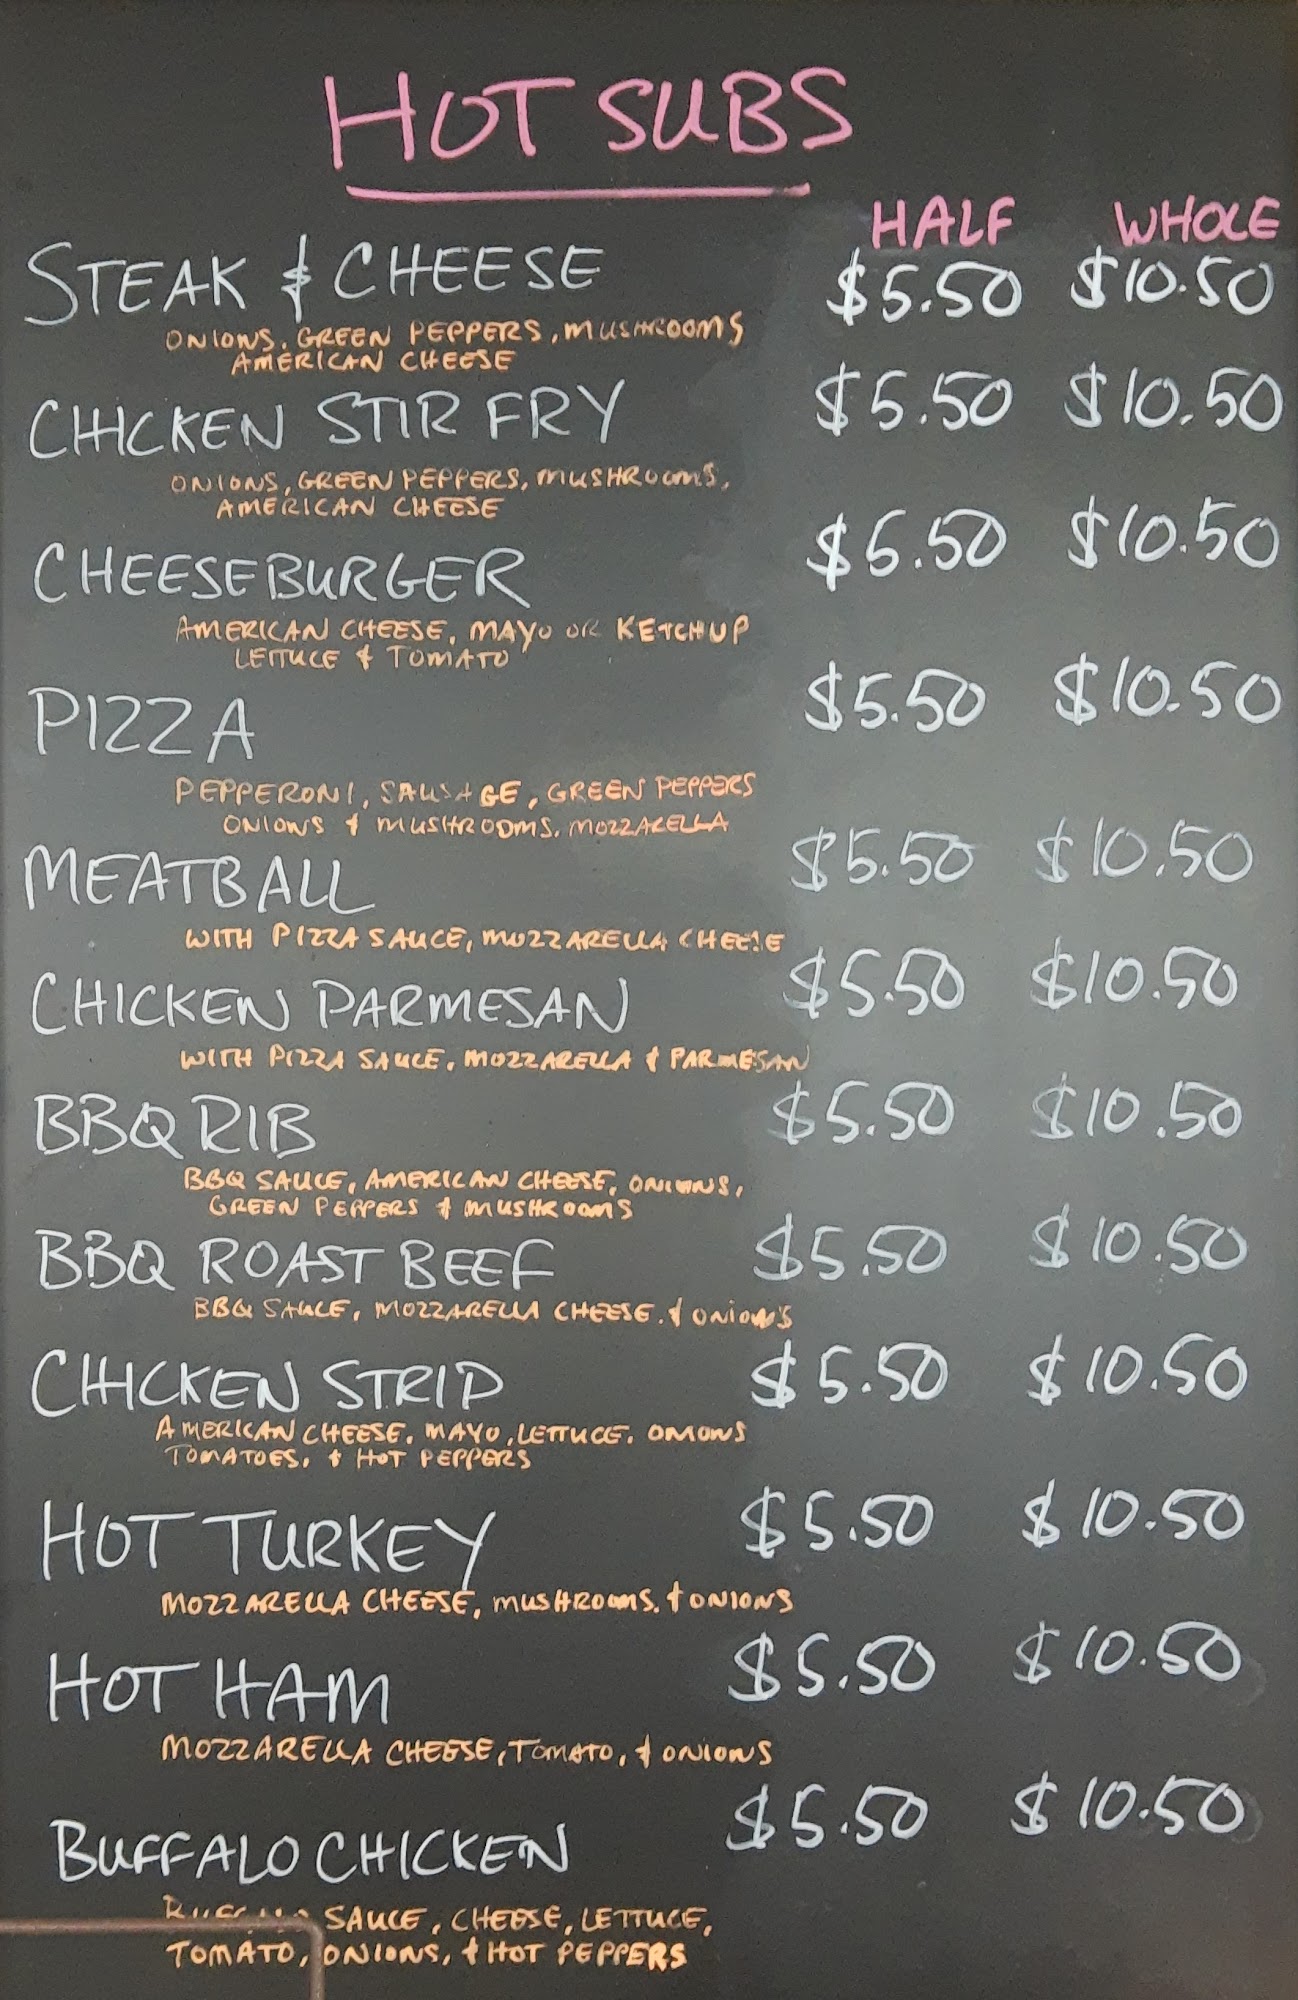 HOT SUBS
HALF WHOLE
STEAK & CHEESE $5.50 $10.50
ONIONS, GREEN PEPPERS, MUSHROOMS
AMERICAN CHEESE
CHICKEN STIR FRY $5.50 $10.50
ONIONS, GREEN PEPPERS, MUSHROOMS,
AMERICAN CHEESE
CHEESEBURGER $5.50 $10.50
AMERICAN CHEESE, MAYO OR KETCHUP
LETTUCE & TOMATO
PIZZA $5.50 $10.50
PEPPERONI, SAUSAGE, GREEN PEPPERS
ONIONS & MUSHROOMS, MOZZARELLA
MEATBALL $5.50 $10.50
WITH PIZZA SAUCE, MOZZARELLA CHEESE
CHICKEN PARMESAN $5.50 $10.50
WITH PIZZA SAUCE, MOZZARELLA & PARMESAN
BBQ RIB $5.50 $10.50
BBQ SAUCE, AMERICAN CHEESE, ONIONS,
GREEN PEPPERS & MUSHROOMS
BBQ ROAST BEEF $5.50 $10.50
BBQ SAUCE, MOZZARELLA CHEESE, & ONIONS
CHICKEN STRIP $5.50 $10.50
AMERICAN CHEESE, MAYO, LETTUCE, ONIONS
TOMATOES, & HOT PEPPERS
HOT TURKEY $5.50 $10.50
MOZZARELLA CHEESE, MUSHROOMS, & ONIONS
HOT HAM $5.50 $10.50
MOZZARELLA CHEESE, TOMATO, & ONIONS
BUFFALO CHICKEN $5.50 $10.50
SAUCE, CHEESE, LETTUCE,
TOMATO, ONIONS, & HOT PEPPERS